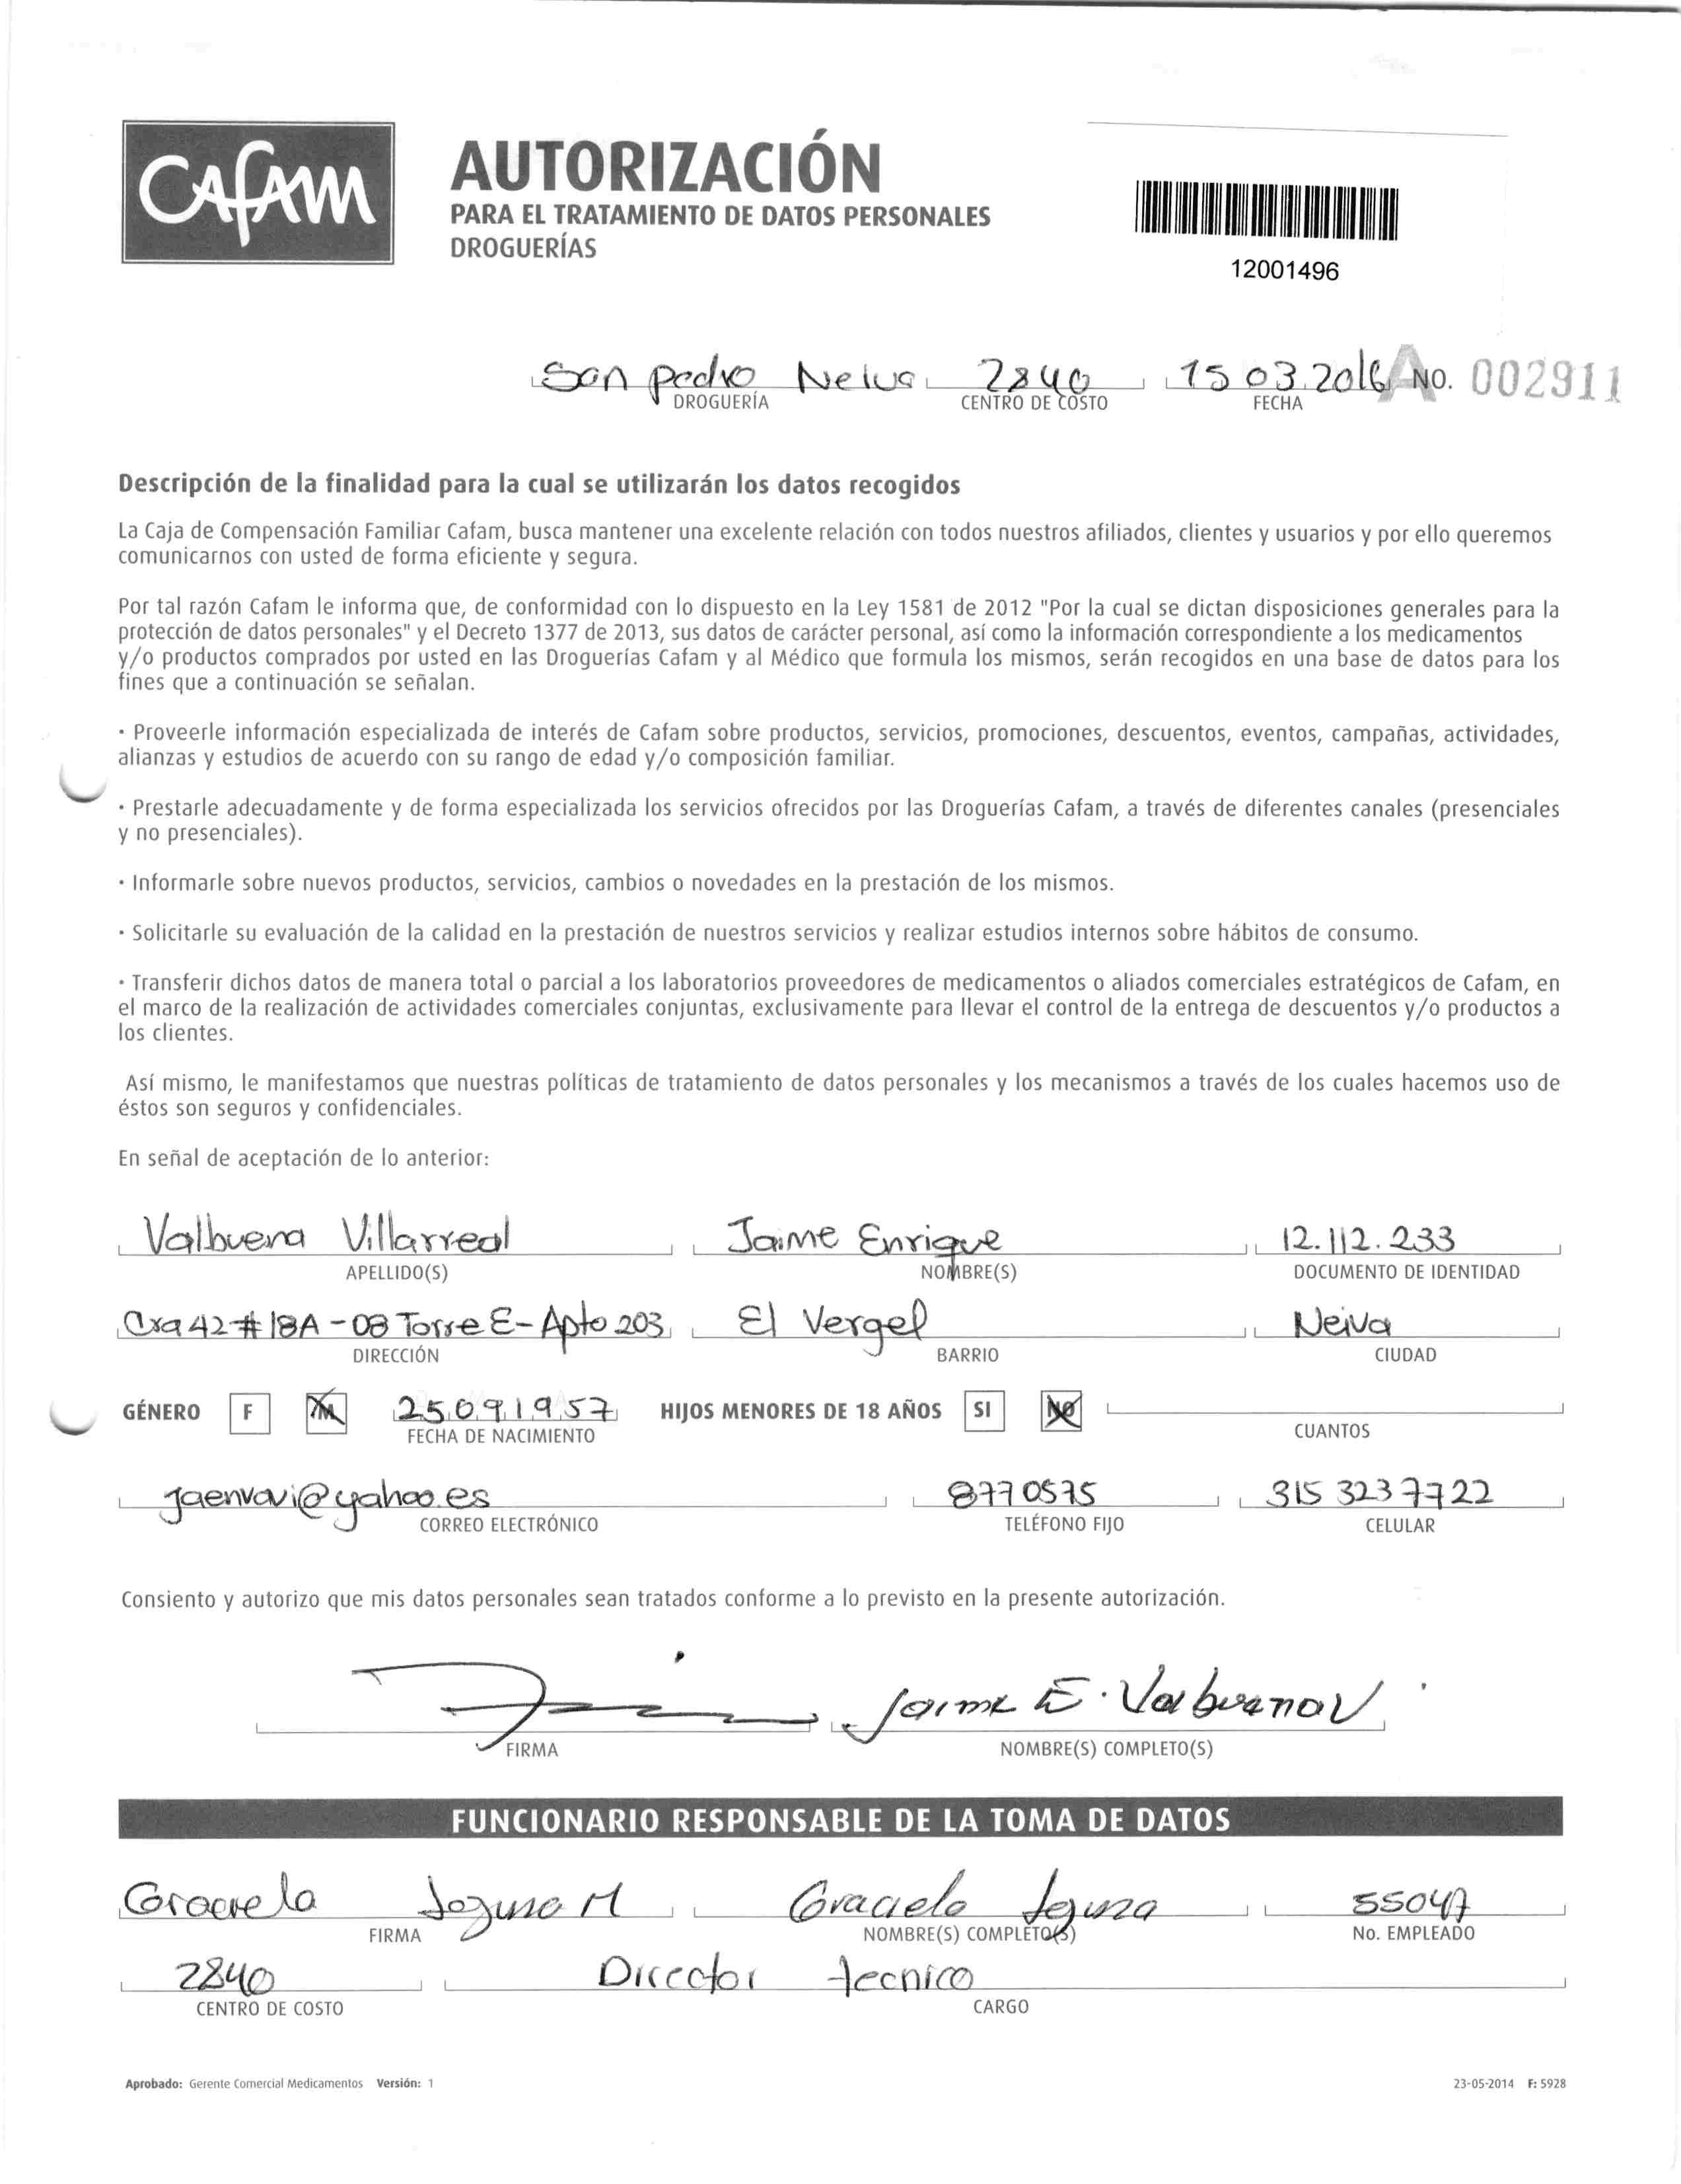 CAFAM
AUTORIZACIÓN
PARA EL TRATAMIENTO DE DATOS PERSONALES
DROGUERÍAS
12001496
San pedro Neiva 2840 15 03 2016 A No. 002911
DROGUERÍA CENTRO DE COSTO FECHA
Descripción de la finalidad para la cual se utilizarán los datos recogidos
La Caja de Compensación Familiar Cafam, busca mantener una excelente relación con todos nuestros afiliados, clientes y usuarios y por ello queremos
comunicarnos con usted de forma eficiente y segura.
Por tal razón Cafam le informa que, de conformidad con lo dispuesto en la Ley 1581 de 2012 "Por la cual se dictan disposiciones generales para la
protección de datos personales" y el Decreto 1377 de 2013, sus datos de carácter personal, así como la información correspondiente a los medicamentos
y/o productos comprados por usted en las Droguerías Cafam y al Médico que formula los mismos, serán recogidos en una base de datos para los
fines que a continuación se señalan.
· Proveerle información especializada de interés de Cafam sobre productos, servicios, promociones, descuentos, eventos, campañas, actividades,
alianzas y estudios de acuerdo con su rango de edad y/o composición familiar.
· Prestarle adecuadamente y de forma especializada los servicios ofrecidos por las Droguerías Cafam, a través de diferentes canales (presenciales
y no presenciales).
· Informarle sobre nuevos productos, servicios, cambios o novedades en la prestación de los mismos.
· Solicitarle su evaluación de la calidad en la prestación de nuestros servicios y realizar estudios internos sobre hábitos de consumo.
· Transferir dichos datos de manera total o parcial a los laboratorios proveedores de medicamentos o aliados comerciales estratégicos de Cafam, en
el marco de la realización de actividades comerciales conjuntas, exclusivamente para llevar el control de la entrega de descuentos y/o productos a
los clientes.
Así mismo, le manifestamos que nuestras políticas de tratamiento de datos personales y los mecanismos a través de los cuales hacemos uso de
éstos son seguros y confidenciales.
En señal de aceptación de lo anterior:
Valbuena Villarreal Jaime Enrique 12.112.233
APELLIDO(S) NOMBRE(S) DOCUMENTO DE IDENTIDAD
Cra 42 # 18A - 08 Torre E - Apto 203 El Vergel Neiva
DIRECCIÓN BARRIO CIUDAD
GÉNERO F M 25 09 1957 HIJOS MENORES DE 18 AÑOS SI NO
FECHA DE NACIMIENTO CUANTOS
jaenvavi@yahoo.es 8770575 315 3237722
CORREO ELECTRÓNICO TELÉFONO FIJO CELULAR
Consiento y autorizo que mis datos personales sean tratados conforme a lo previsto en la presente autorización.
Jaime E. Valbuena V
FIRMA NOMBRE(S) COMPLETO(S)
FUNCIONARIO RESPONSABLE DE LA TOMA DE DATOS
Graciela Segura M Graciela Segura 55047
FIRMA NOMBRE(S) COMPLETO(S) No. EMPLEADO
2840 Director tecnico
CENTRO DE COSTO CARGO
Aprobado: Gerente Comercial Medicamentos Versión: 1 23-05-2014 F: 5928